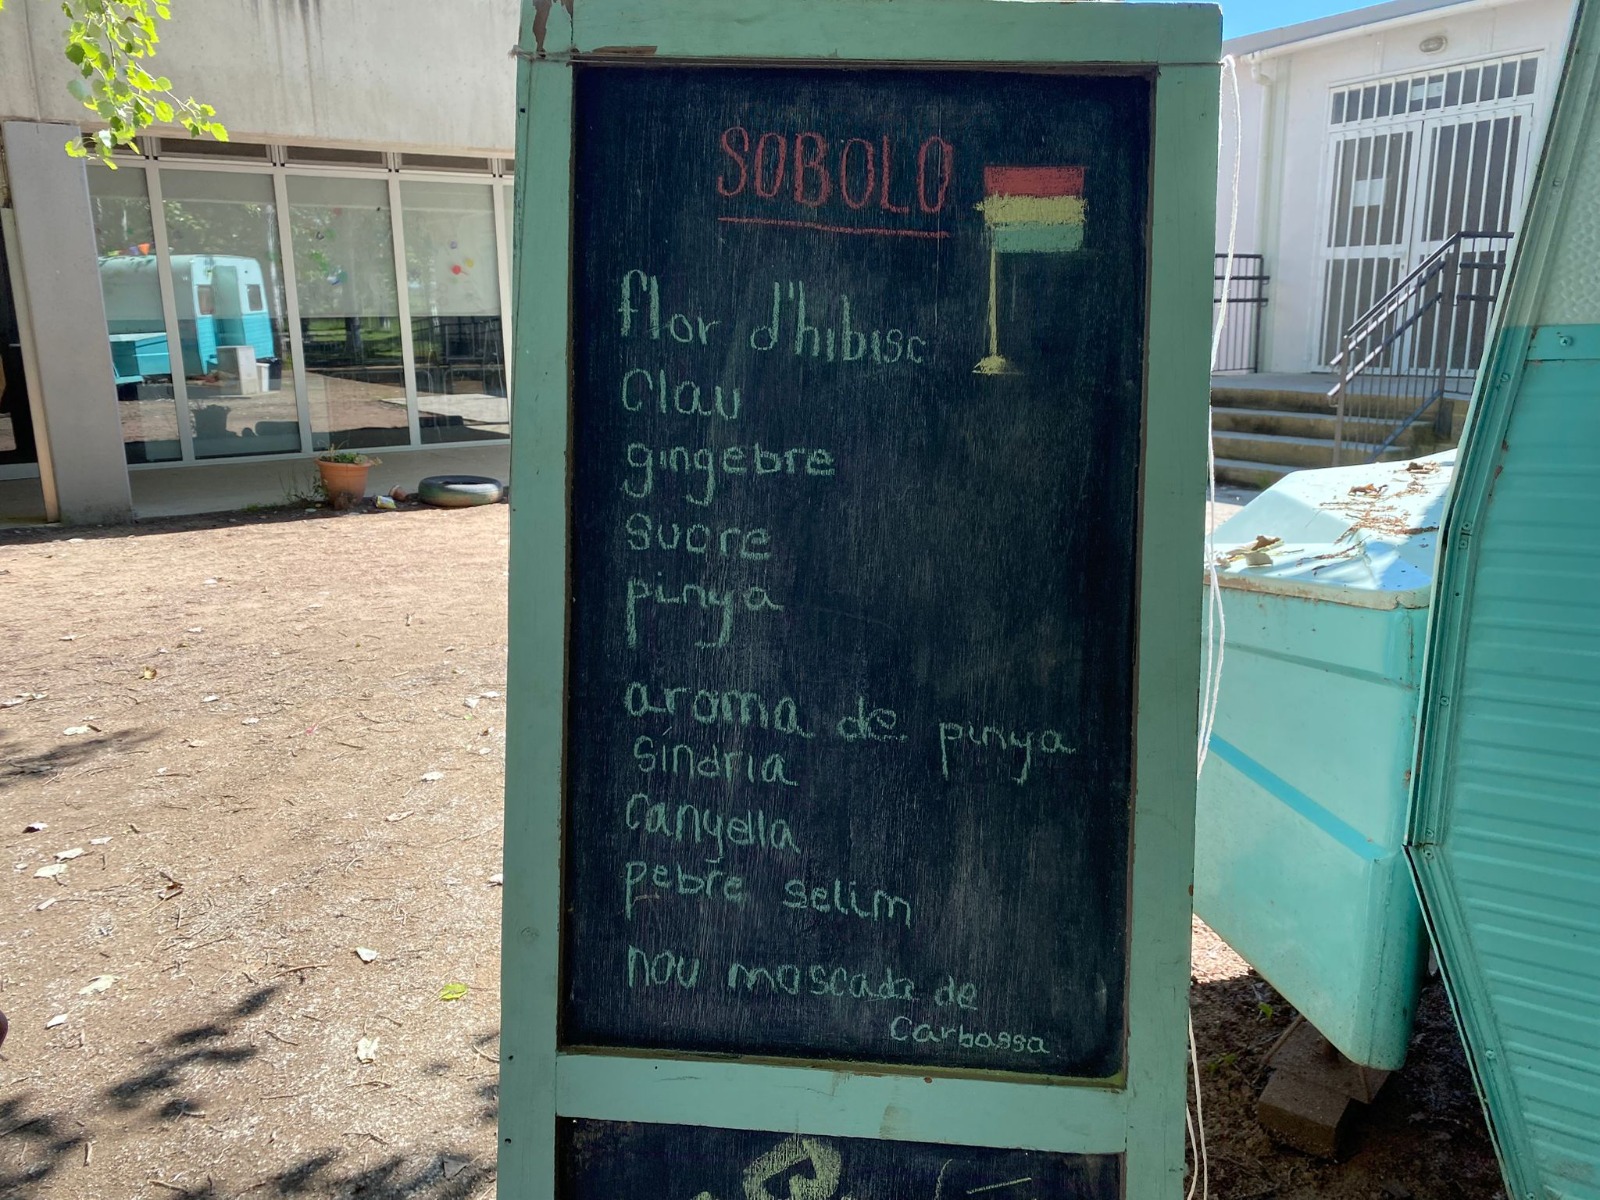 SOBOLO
flor d'hibisc
Clau
gingebre
sucre
pinya
aroma de pinya
síndria
canyella
pebre selim
nou moscada de
Carbassa